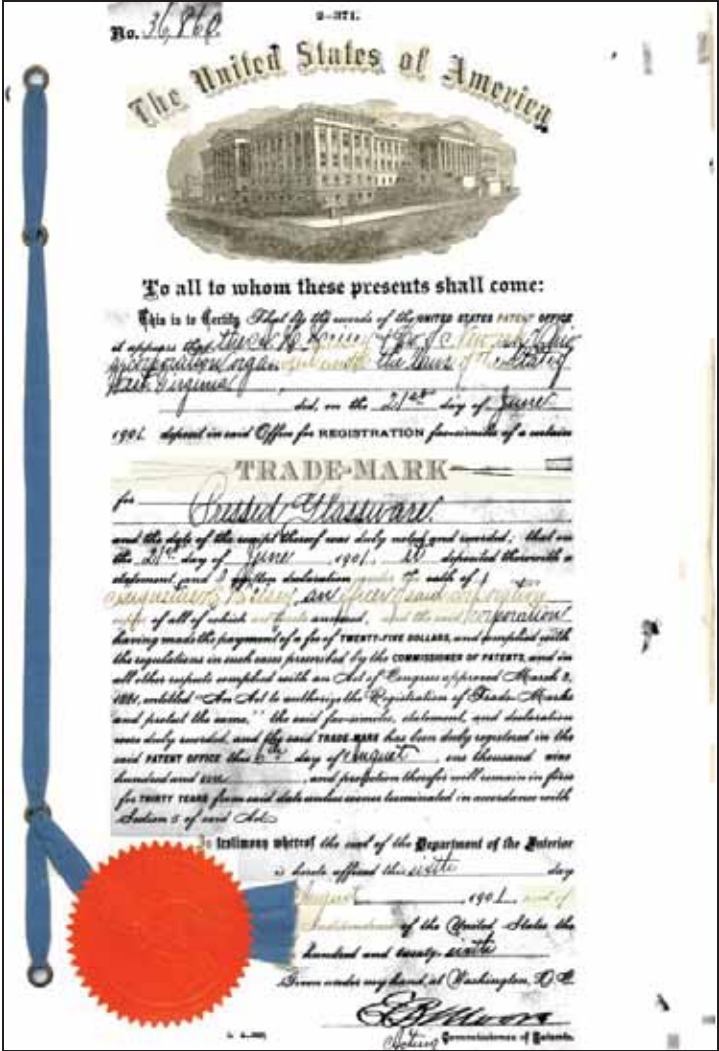 2-371.
No. 36,860.
The United States of America
To all to whom these presents shall come:
This is to Certify That by the records of the UNITED STATES PATENT OFFICE
it appears that the A. H. Heisey & Co. of Newark, Ohio
a corporation organized under the laws of the State of
West Virginia
did, on the 21st day of June
1901 deposit in said Office for REGISTRATION fac-simile of a certain
TRADE-MARK
for Pressed Glassware.
and the date of the receipt thereof was duly noted and recorded; that on
the 21st day of June, 1901. it deposited therewith a
statement, and a written declaration under the oath of
an officer of said corporation
of all of which are annexed, and the said corporation
having made the payment of a fee of TWENTY-FIVE DOLLARS, and complied with
the regulations in such cases prescribed by the COMMISSIONER OF PATENTS, and in
all other respects complied with an Act of Congress approved March 3,
1881, entitled "An Act to authorize the Registration of Trade-Marks
and protect the same," the said fac-simile, statement, and declaration
were duly recorded, and the said TRADE-MARK has been duly registered in the
said PATENT OFFICE this 6th day of August, one thousand nine
hundred and one, and protection therefor will remain in force
for THIRTY YEARS from said date unless sooner terminated in accordance with
Section 5 of said Act.
In testimony whereof the seal of the Department of the Interior
is hereto affixed this sixth day
August, 1901. and of
Independence of the United States the
hundred and twenty-sixth
Given under my hand, at Washington, D.C.
E.B. Moore
Acting Commissioner of Patents.